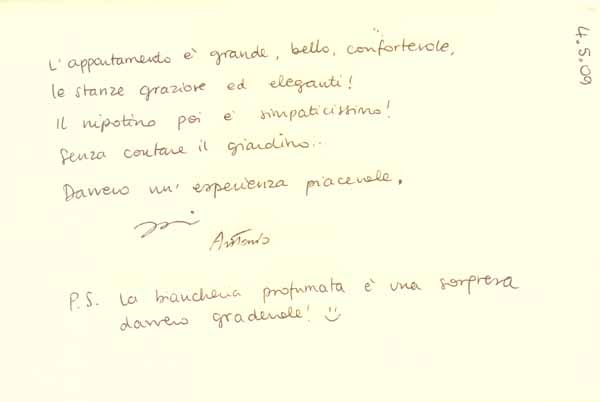 4.5.09
L'appartamento è grande, bello, confortevole,
le stanze graziose ed eleganti!
Il nipotino poi è simpaticissimo!
Senza contare il giardino..
Davvero un'esperienza piacevole.
Antonio
P.S. La biancheria profumata è una sorpresa
davvero gradevole! :)